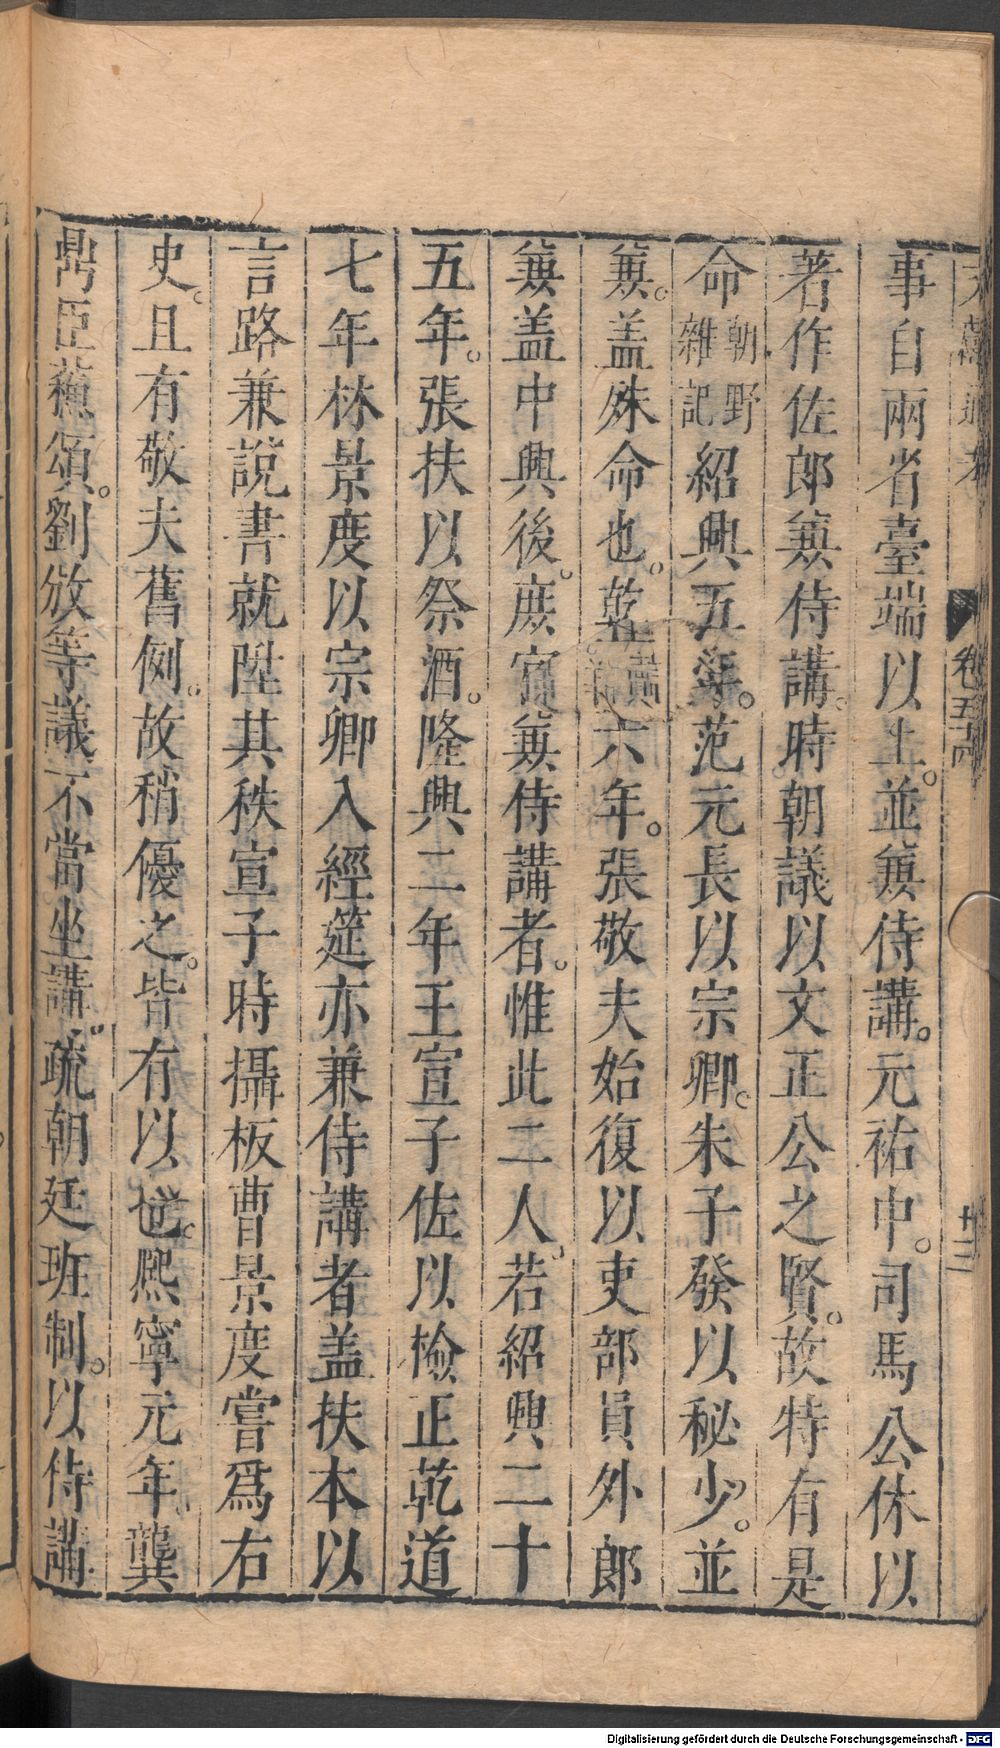 文獻通考 卷五十四 廿二
事自兩省臺端以上並兼侍講元祐中司馬公休以
著作佐郎兼侍講時朝議以文正公之賢故特有是
命朝野雜記紹興五年范元長以宗卿朱子發以秘少並
兼蓋殊命也乾道六年張敬夫始復以吏部員外郎
兼盖中興後庶官兼侍講者惟此二人若紹興二十
五年張扶以祭酒隆興二年王宣子佐以檢正乾道
七年林景度以宗卿入經筵亦兼侍講者盖扶本以
言路兼說書就陞其秩宣子時攝板曹景度嘗爲右
史且有敬夫舊例故稍優之皆有以也熈寧元年龔
鼎臣蘓頌劉攽等議不當坐講疏朝廷班制以侍講
Digitalisierung gefördert durch die Deutsche Forschungsgemeinschaft - DFG